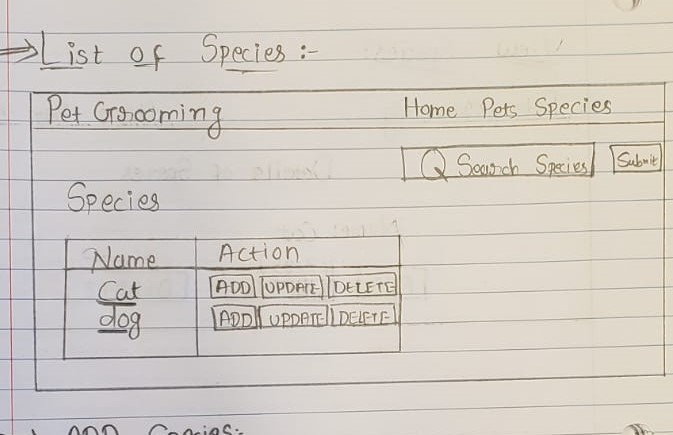 ⇒ List of Species :-
Pet Grooming Home Pets Species
Search Species Submit
Species
Name Action
Cat ADD UPDATE DELETE
dog ADD UPDATE DELETE
ADD Species:-